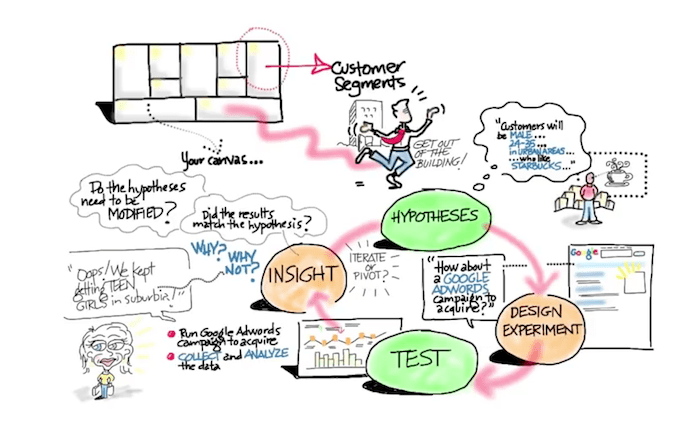 Customer
Segments
Your canvas...
GET OUT
OF THE
BUILDING!
"Customers will
be MALE...
24-35...
in URBAN AREAS...
...who like
STARBUCKS..."
Do the hypotheses
need to be
MODIFIED?
Did the results
match the hypothesis?
WHY?
WHY
NOT?
HYPOTHESES
INSIGHT
ITERATE
or
PIVOT?
"How about
a GOOGLE
ADWORDS
campaign to
acquire?"
Google
DESIGN
EXPERIMENT
TEST
"Oops! We kept
getting TEEN
GIRLS in suburbia!"
Run Google Adwords
campaign to acquire
COLLECT and ANALYZE
the data